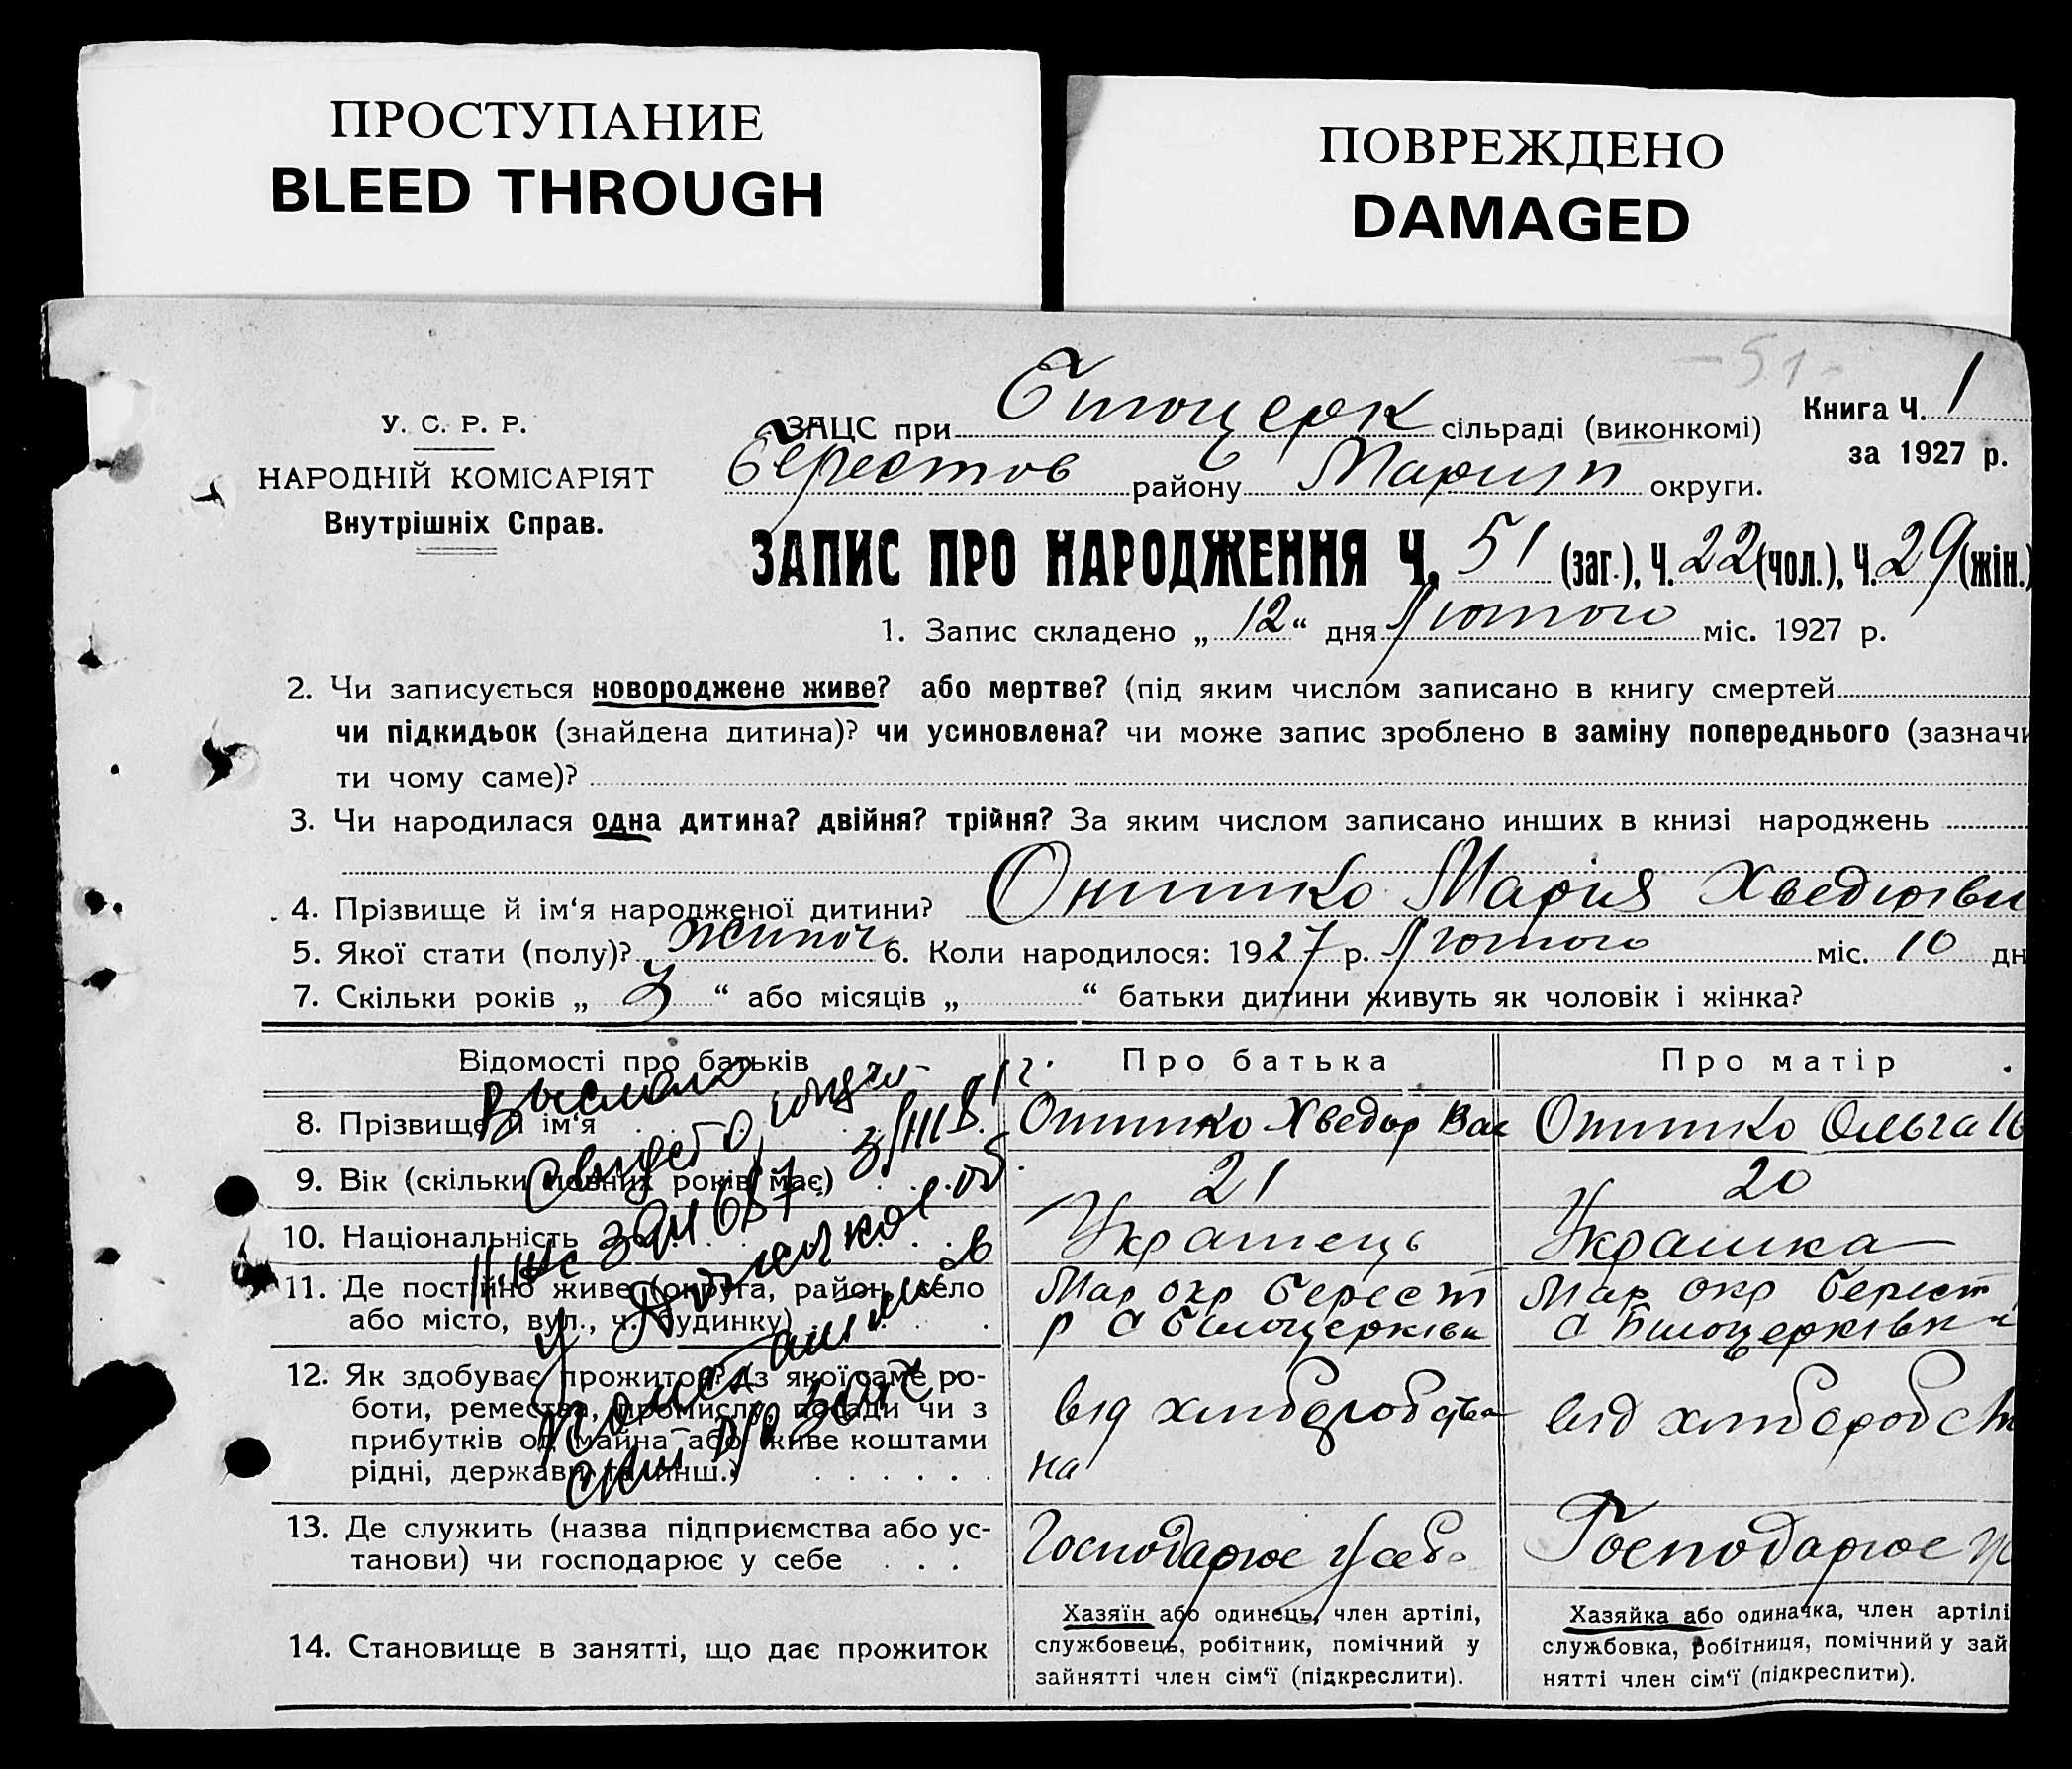 ПРОСТУПАНИЕ
BLEED THROUGH
ПОВРЕЖДЕНО
DAMAGED
-51-
У. С. Р. Р.
НАРОДНІЙ КОМІСАРІЯТ
Внутрішніх Справ.
Книга Ч. 1
за 1927 р.
ЗАЦС при Білоцерк сільраді (виконкомі)
Берестов району Маріуп округи.
ЗАПИС ПРО НАРОДЖЕННЯ Ч. 51 (заг.), Ч. 22 (чол.), Ч. 29 (жін.)
1. Запис складено „ 12 “ дня Лютого міс. 1927 р.
2. Чи записується новороджене живе? або мертве? (під яким числом записано в книгу смертей
чи підкидьок (знайдена дитина)? чи усиновлена? чи може запис зроблено в заміну попереднього (зазначи
ти чому саме)?
3. Чи народилася одна дитина? двійня? трійня? За яким числом записано инших в книзі народжень
4. Прізвище й ім‘я народженої дитини? Онипко Марія Хведорівн
5. Якої стати (полу)? жіноч 6. Коли народилося: 1927 р. Лютого міс. 10 дн
7. Скільки років „ 3 “ або місяців „ “ батьки дитини живуть як чоловік і жінка?
Відомості про батьків Про батька Про матір
8. Прізвище й ім‘я Онипко Хведор Вас Онипко Ольга
9. Вік (скільки повних років має) 21 20
10. Національність Українець Українка
11. Де постійно живе (округа, район, село Мар окр Берест Мар окр Берест
або місто, вул., ч. будинку) р С Білоцерківка С Білоцерківка
12. Як здобуває прожиток? (з якої саме ро-
боти, ремества, промислу, посади чи з від хліборобства від хліборобств
прибутків од майна або живе коштами
рідні, держави та инш.) на
13. Де служить (назва підприємства або ус- Господарює у себе Господарює у
танови) чи господарює у себе
14. Становище в занятті, що дає прожиток
Хазяїн або одинець, член артілі,
службовець, робітник, помічний у
зайнятті член сім‘ї (підкреслити).
Хазяйка або одиначка, член артілі
службовка, робітниця, помічний у зай
нятті член сім‘ї (підкреслити).